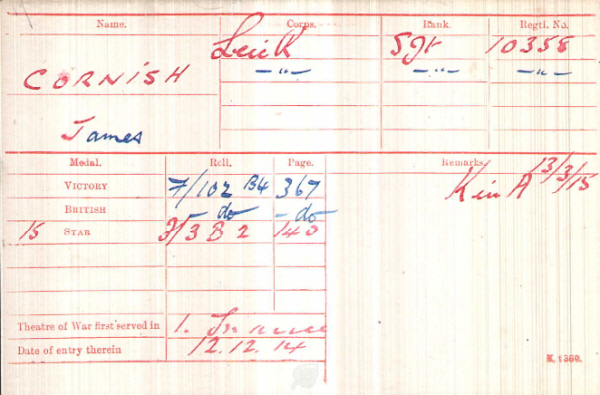 Name. Corps. Rank. Regtl. No.
Leic R Sjt 10358
CORNISH -"- -"- -"-
James
Medal. Roll. Page. Remarks.
VICTORY F/102 B4 367 Kin A 13/3/15
BRITISH - do - do
15 STAR F/3 B 2 140
Theatre of War first served in 1. France
Date of entry therein 12.12.14
K. 1380.